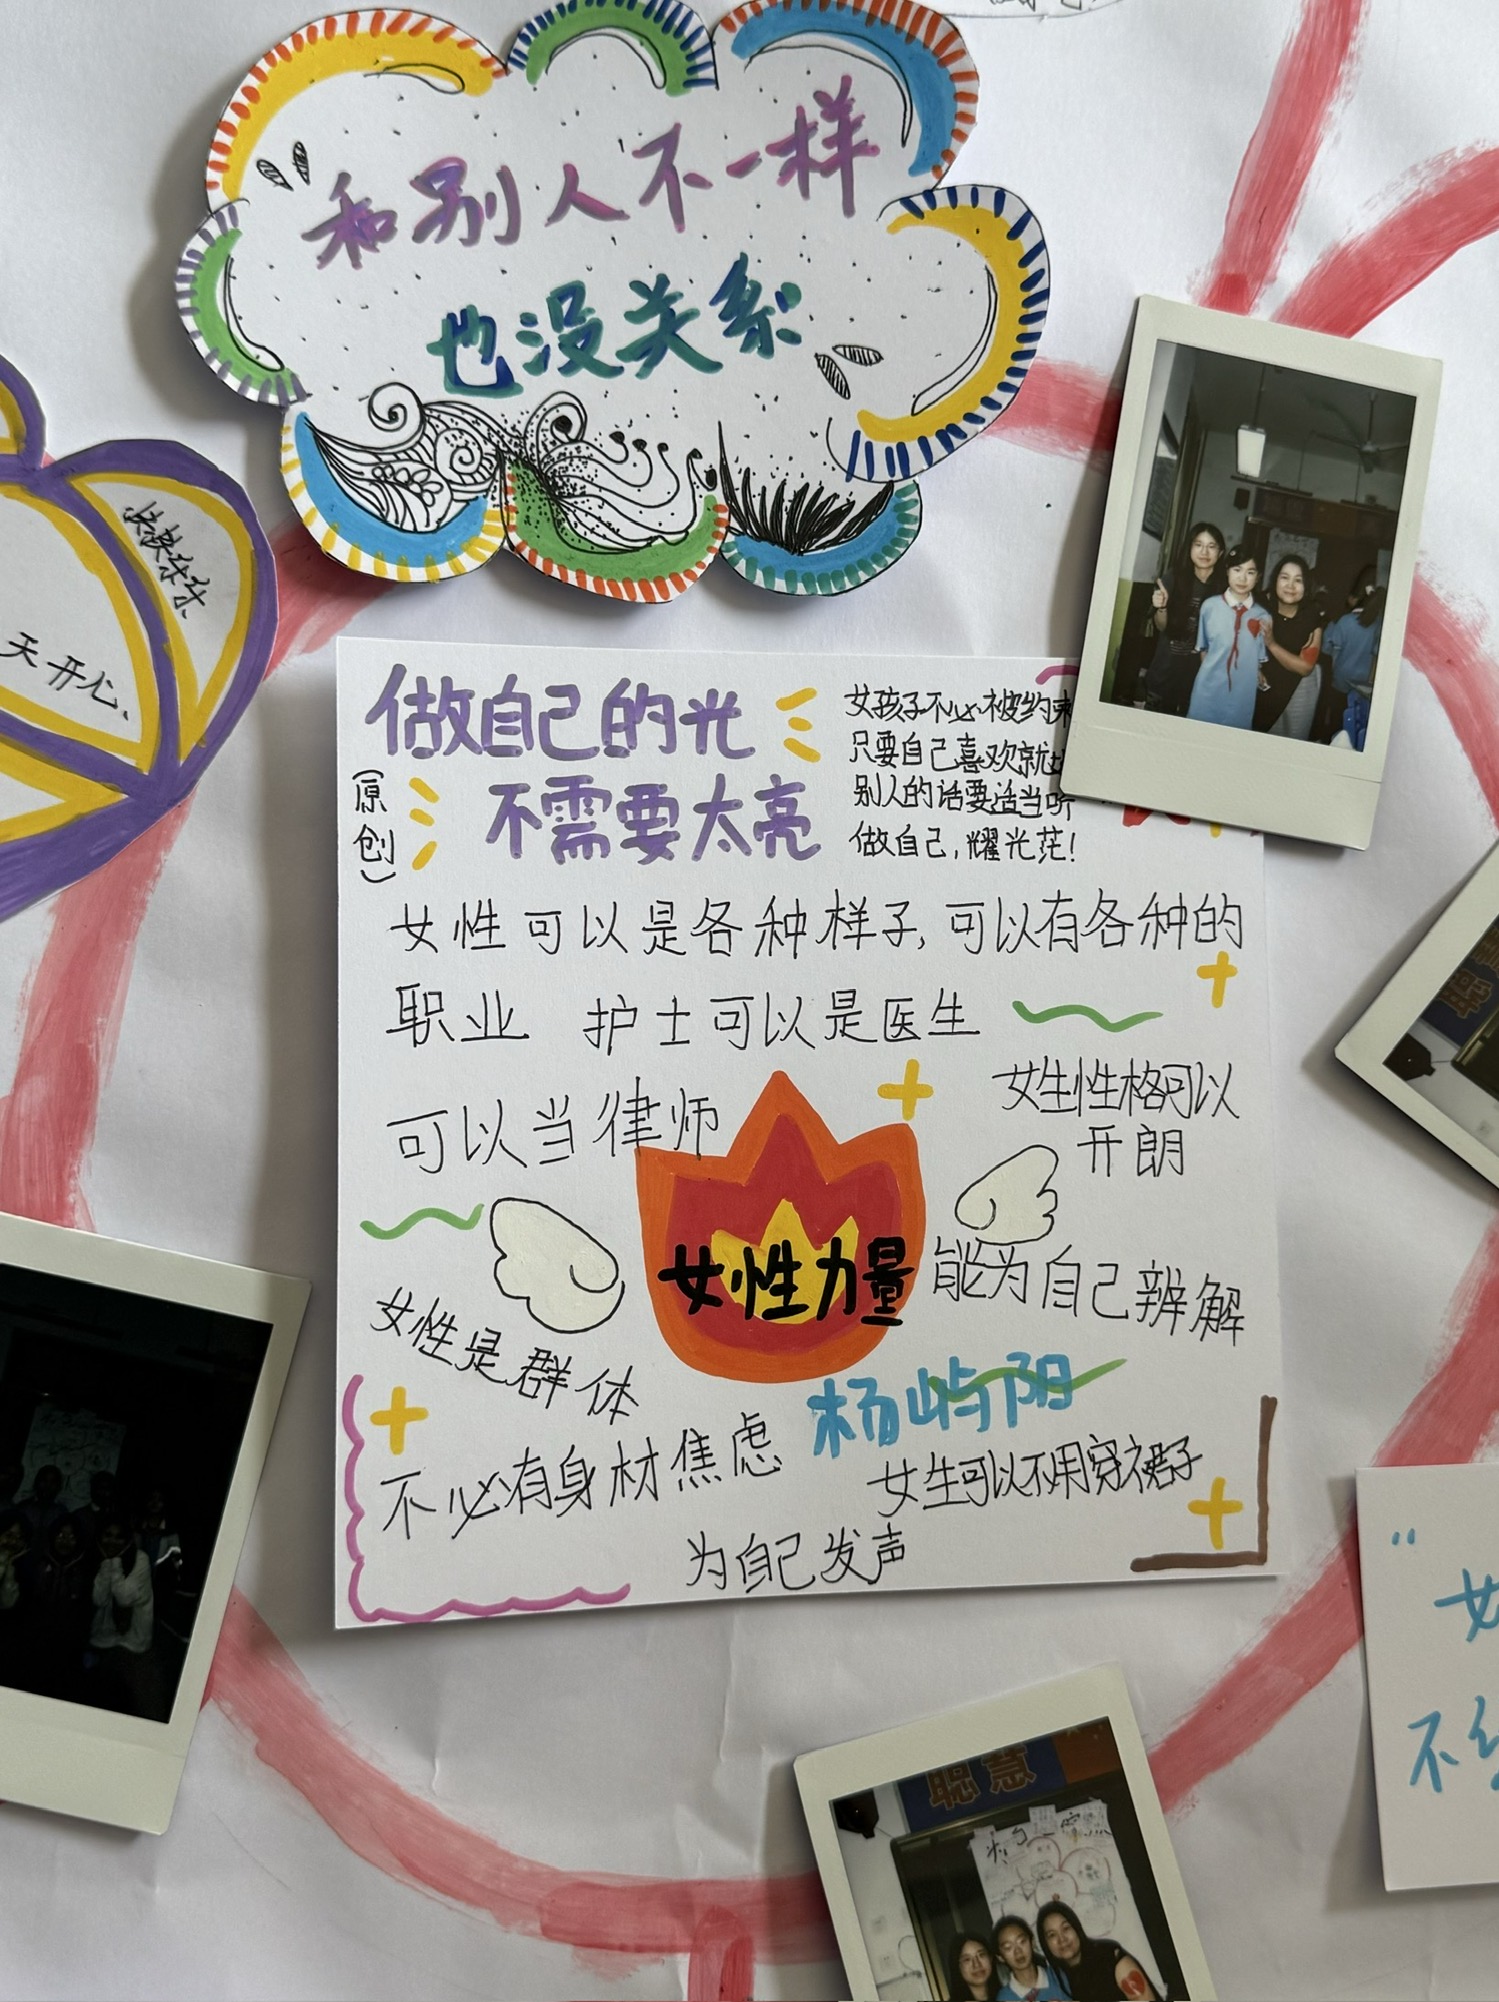 和别人不一样
也没关系
快乐
天开心、
做自己的光
不需要太亮
(原创)
女孩子不必被约束
只要自己喜欢就
别人的话要适当听
做自己,耀光茫!
女性可以是各种样子,可以有各种的
职业 护士可以是医生
可以当律师
女生性格可以
开朗
女性力量
能为自己辨解
女性是群体
杨屿阳
不必有身材焦虑
女生可以不用穿裙子
为自己发声
聪慧
"女
不